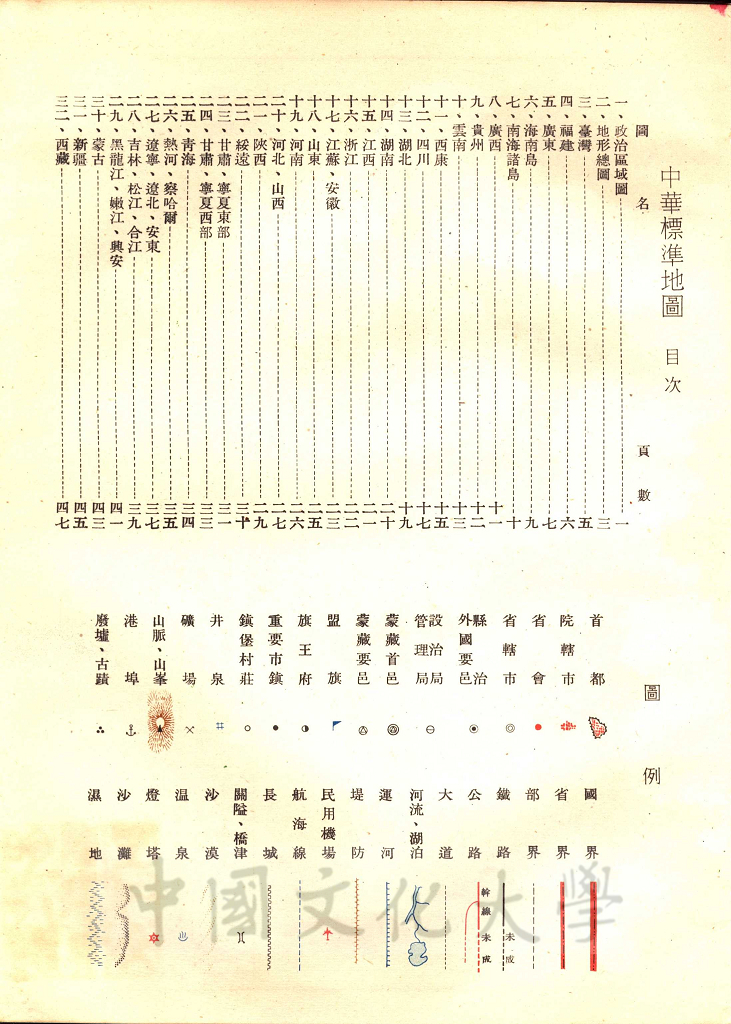 中華標準地圖 目次
圖名 頁數
一、政治區域圖 一
二、地形總圖 三
三、臺灣 五
四、福建 六
五、廣東 七
六、海南島 九
七、南海諸島 十
八、廣西 十一
九、貴州 十二
十、雲南 十三
十一、西康 十五
十二、四川 十七
十三、湖北 十九
十四、湖南 二十
十五、江西 二一
十六、浙江 二二
十七、江蘇、安徽 二三
十八、山東 二五
十九、河南 二六
二十、河北、山西 二七
二一、陝西 二九
二二、綏遠 三十
二三、甘肅、寧夏東部 三一
二四、甘肅、寧夏西部 三三
二五、青海 三四
二六、熱河、察哈爾 三五
二七、遼寧、遼北、安東 三七
二八、吉林、松江、合江 三九
二九、黑龍江、嫩江、興安 四一
三十、蒙古 四三
三一、新疆 四五
三二、西藏 四七
圖例
首都
院轄市
省會
省轄市
縣治
外國要邑
設治局
管理局
蒙藏首邑
蒙藏要邑
盟旗
旗王府
重要市鎮
鎮堡村莊
井泉
礦場
山脈、山峯
港埠
廢墟、古蹟
國界
省界
部界
鐵路
未成
公路
幹線 未成
大道
河流、湖泊
運河
堤防
民用機場
航海線
長城
關隘、橋津
沙漠
溫泉
燈塔
沙灘
濕地
中國文化大學